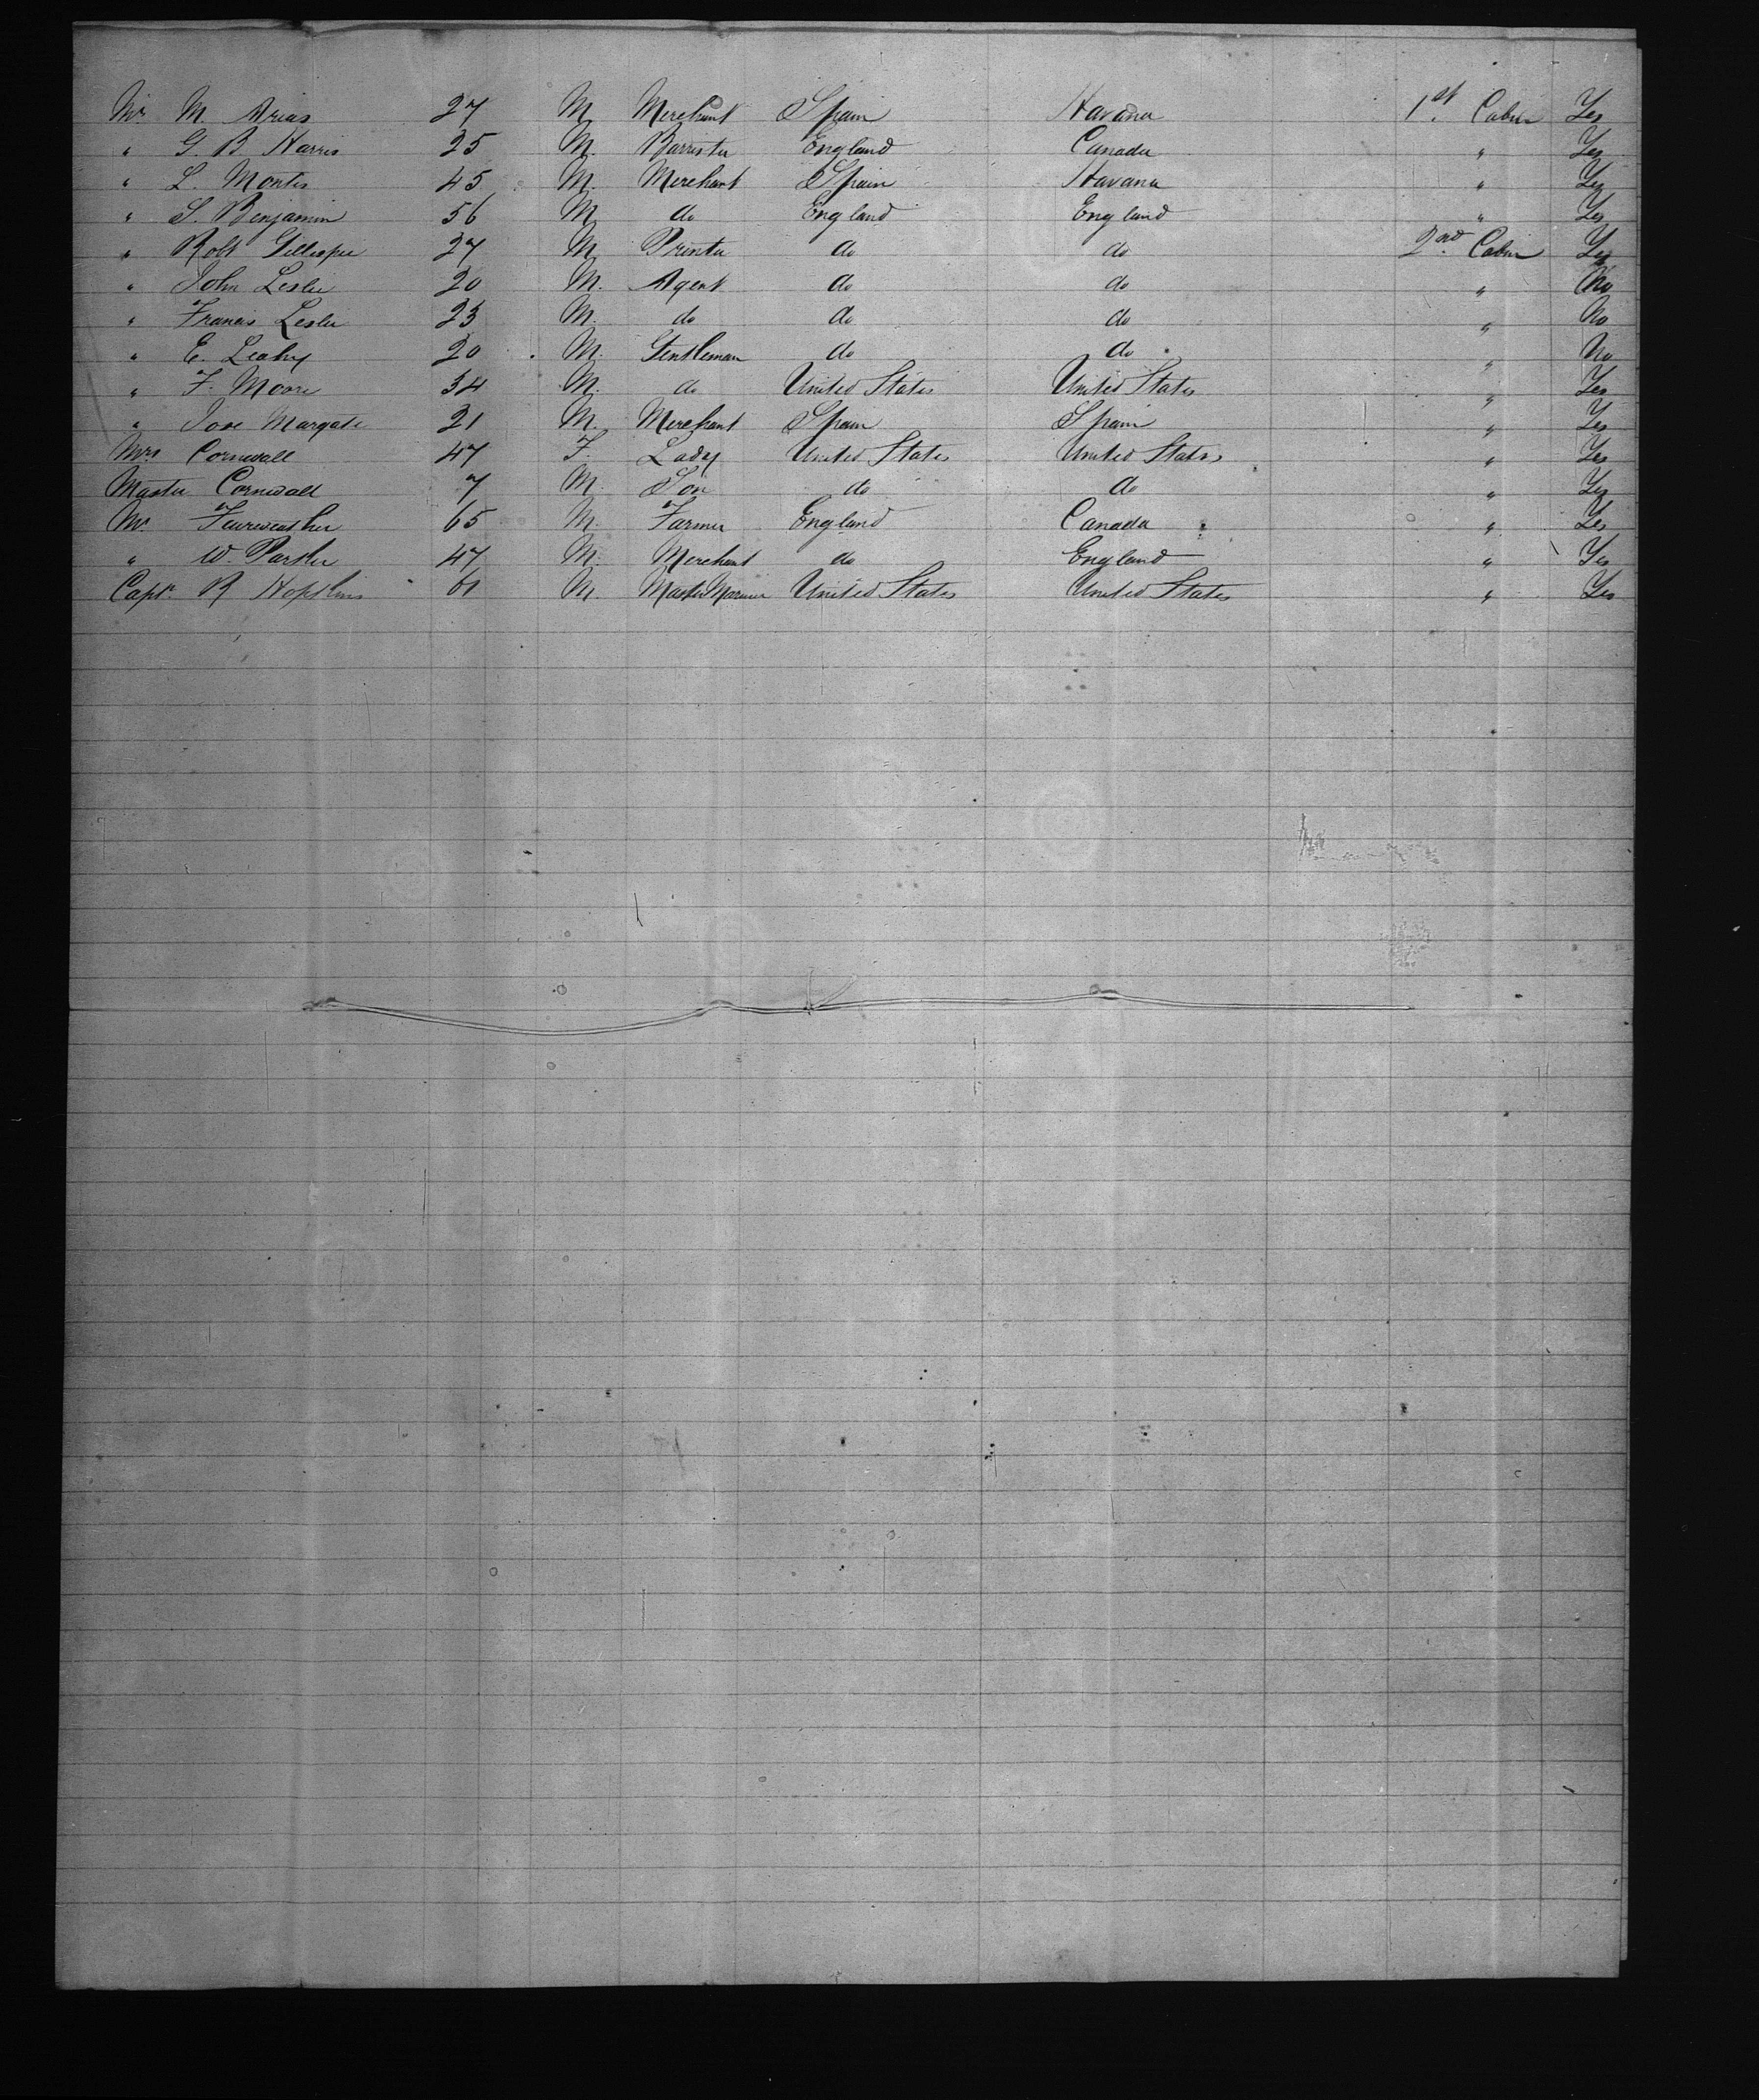 Mr. M Arias 27 M Merchant Spain Havana 1st Cabin Yes
" G. B Harris 25 M. Barrister England Canada " Yes
" L. Montes 45 M. Merchant Spain Havana " Yes
" S. Benjamin 56 M do England England " Yes
" Robt Gillespie 27 M Printer do do 2nd Cabin Yes
" John Leslie 20 M. Agent do do " No
" Francis Leslie 23 M. do do do " No
" E. Leahy 20 M. Gentleman do do " No
" F. Moore 34 M. do United States United States " Yes
" Jose Margate 21 M. Merchant Spain Spain " Yes
Mrs Cornwall 47 F. Lady United States United States " Yes
Master Cornwall 7 M. Son do do " Yes
Mr. Faireweather 65 M. Farmer England Canada " Yes
" W. Parker 47 M. Merchant do England " Yes
Capt. R Hopkins 61 M. Master Mariner United States United States " Yes